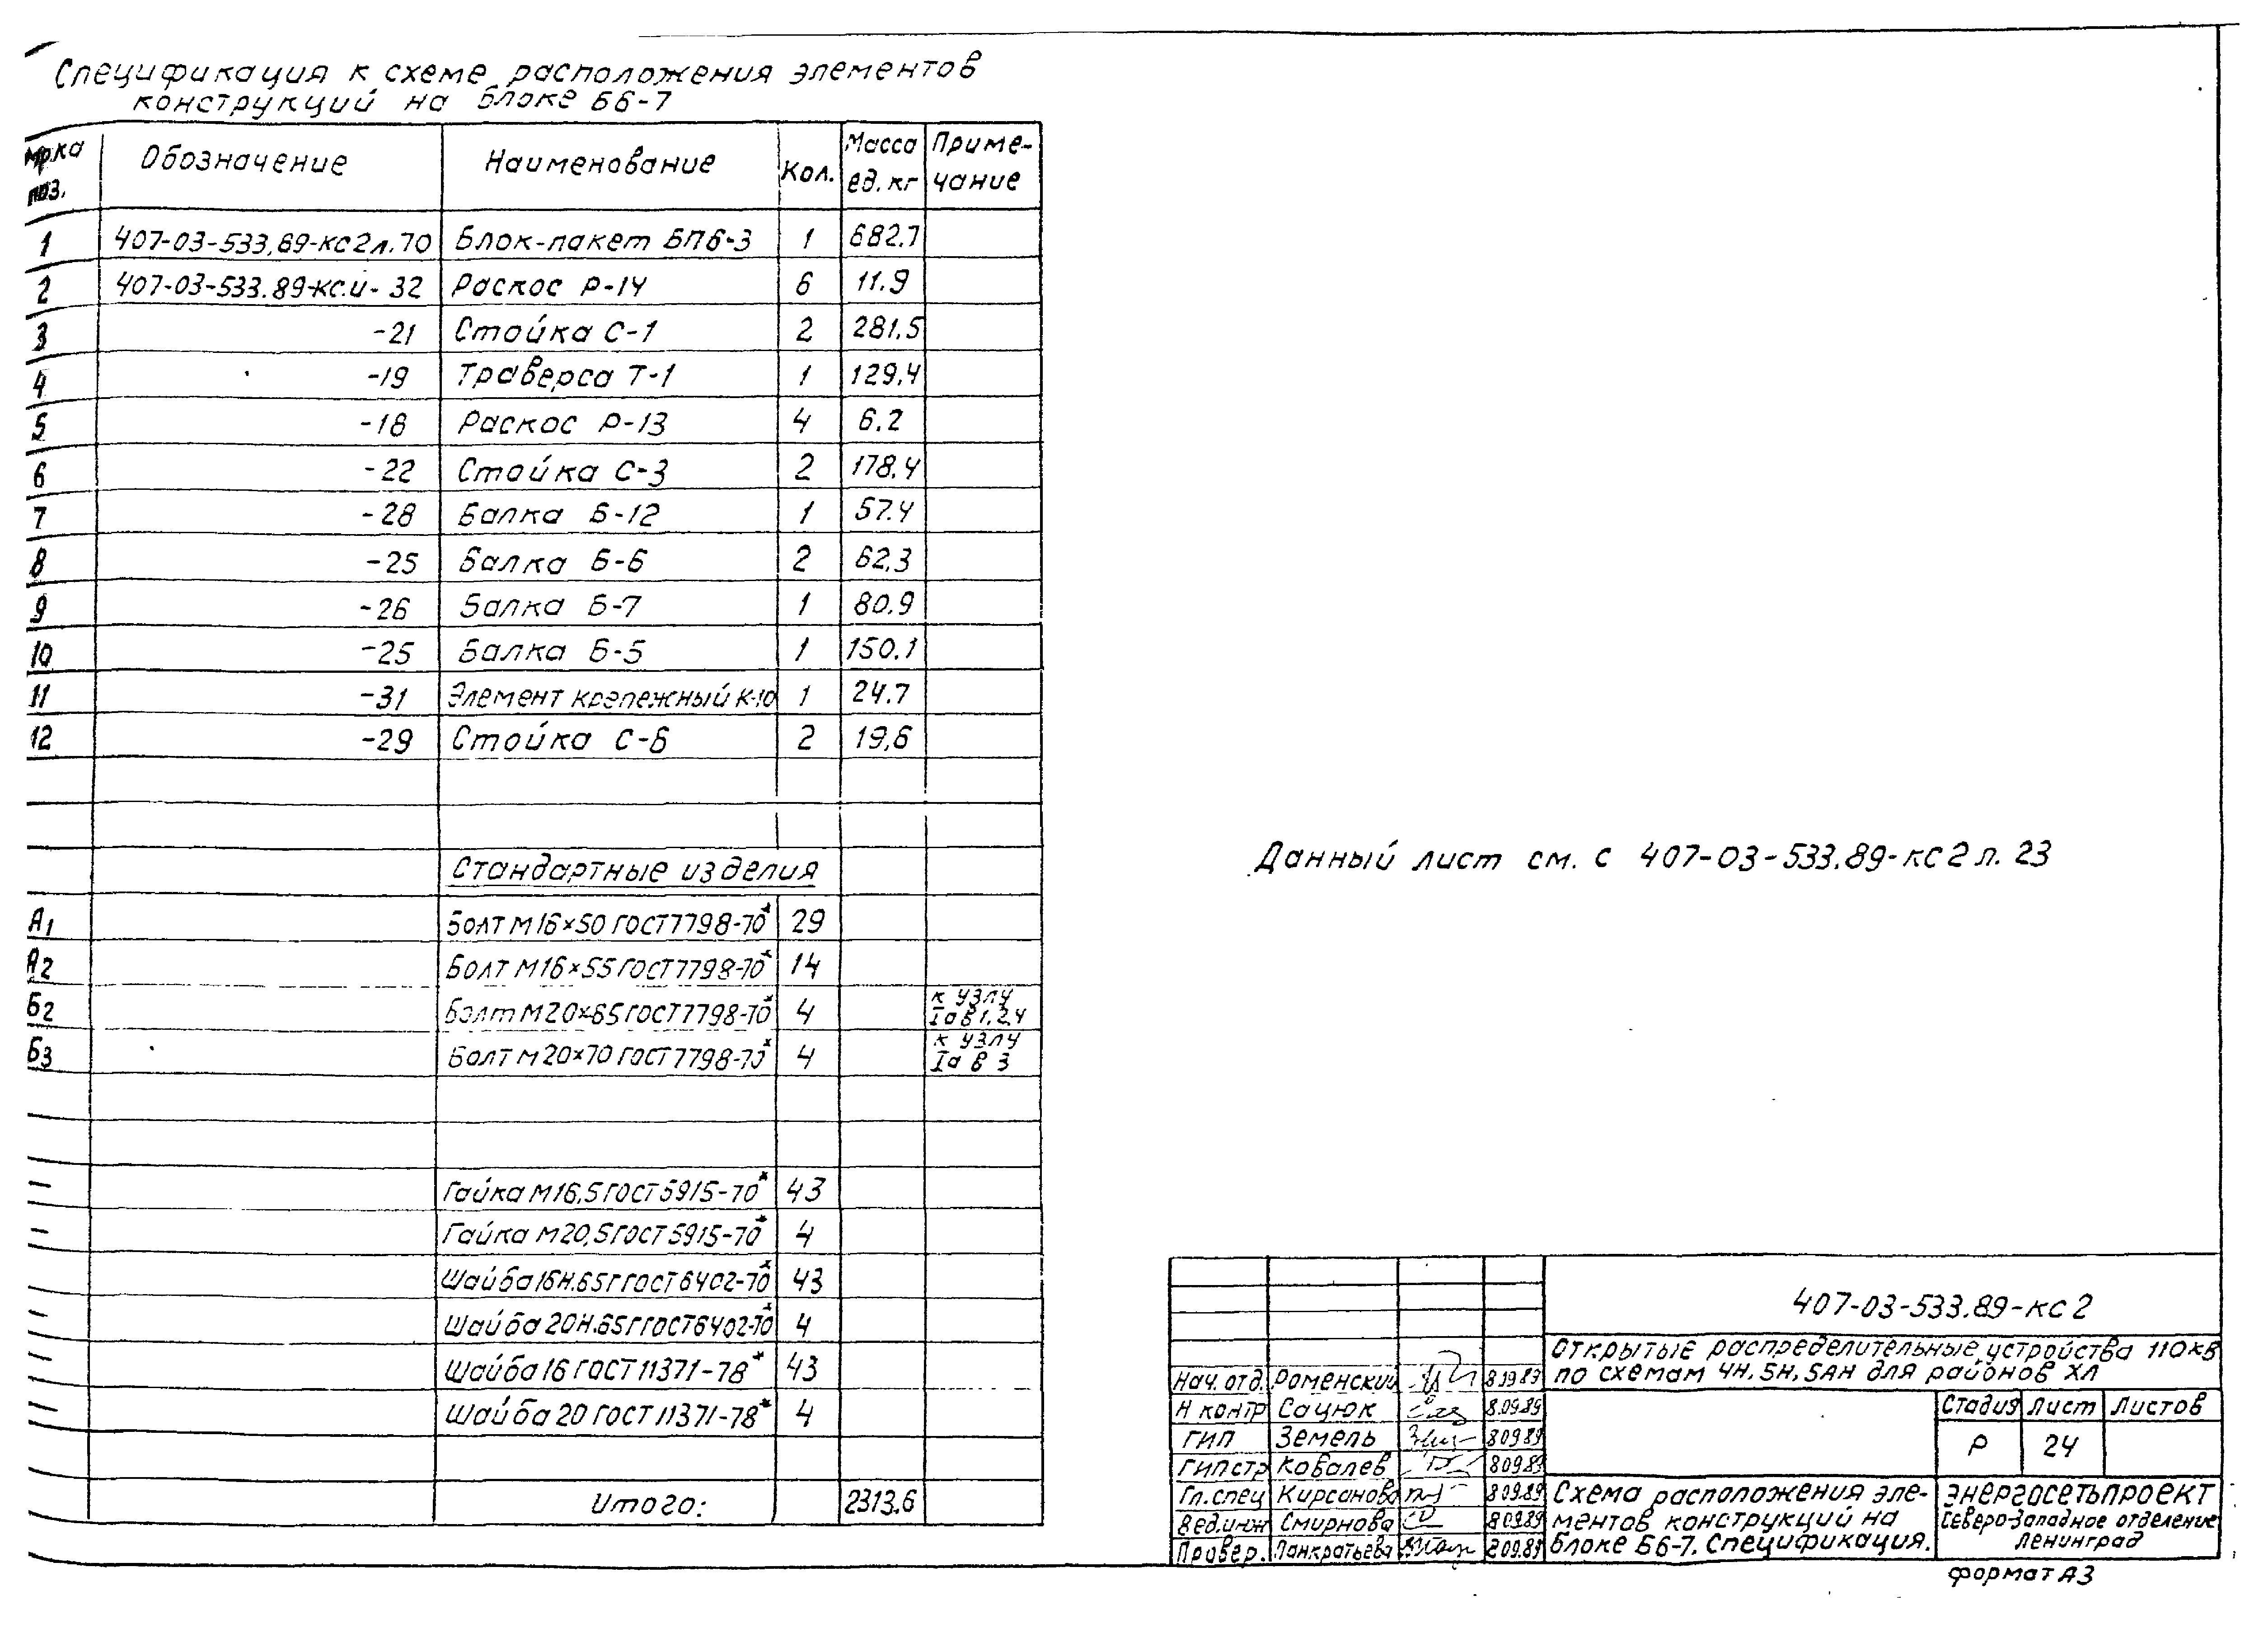 Спецификация к схеме расположения элементов
конструкций на блоке Б6-7
Мрка поз. Обозначение Наименование Кол. Масса ед. кг Приме-чание
1 407-03-533.89-кс2л.70 Блок-пакет БП6-3 1 682.7
2 407-03-533.89-кс.и-32 Раскос Р-14 6 11.9
3 -21 Стойка С-1 2 281.5
4 -19 Траверса Т-1 1 129,4
5 -18 Раскос Р-13 4 6.2
6 -22 Стойка С-3 2 178,4
7 -28 Балка Б-12 1 57.4
8 -25 Балка Б-6 2 62,3
9 -26 Балка Б-7 1 80.9
10 -25 Балка Б-5 1 150.1
11 -31 Элемент крепежный К-10 1 24.7
12 -29 Стойка С-6 2 19,6
Стандартные изделия
А1 Болт М16×50 ГОСТ 7798-70* 29
А2 Болт М16×55 ГОСТ 7798-70* 14
Б2 Болт М20×65 ГОСТ 7798-70* 4 к узлу Iа в 1,2,4
Б3 Болт М20×70 ГОСТ 7798-70* 4 к узлу Iа в 3
— Гайка М16,5 ГОСТ 5915-70* 43
— Гайка М20,5 ГОСТ 5915-70* 4
Шайба 16Н.65Г ГОСТ 6402-70* 43
— Шайба 20Н.65Г ГОСТ 6402-70* 4
— Шайба 16 ГОСТ 11371-78* 43
— Шайба 20 ГОСТ 11371-78* 4
Итого: 2313,6
Данный лист см. с 407-03-533.89-кс2 л. 23
407-03-533.89-кс2
Открытые распределительные устройства 110кв
по схемам 4Н, 5Н, 5АН для районов ХЛ
Нач. отд. Роменский
Н контр Сацюк 8.09.89
ГИП Земель 8.09.89
ГИП стр Ковалев 8.09.89
Гл. спец Кирсанова 8.09.89
Вед.инж Смирнова 8.09.89
Провер. Панкратьева 2.09.89
Стадия Лист Листов
Р 24
Схема расположения эле-
ментов конструкций на
блоке Б6-7. Спецификация.
Энергосетьпроект
Северо-Западное отделение
Ленинград
формат А3